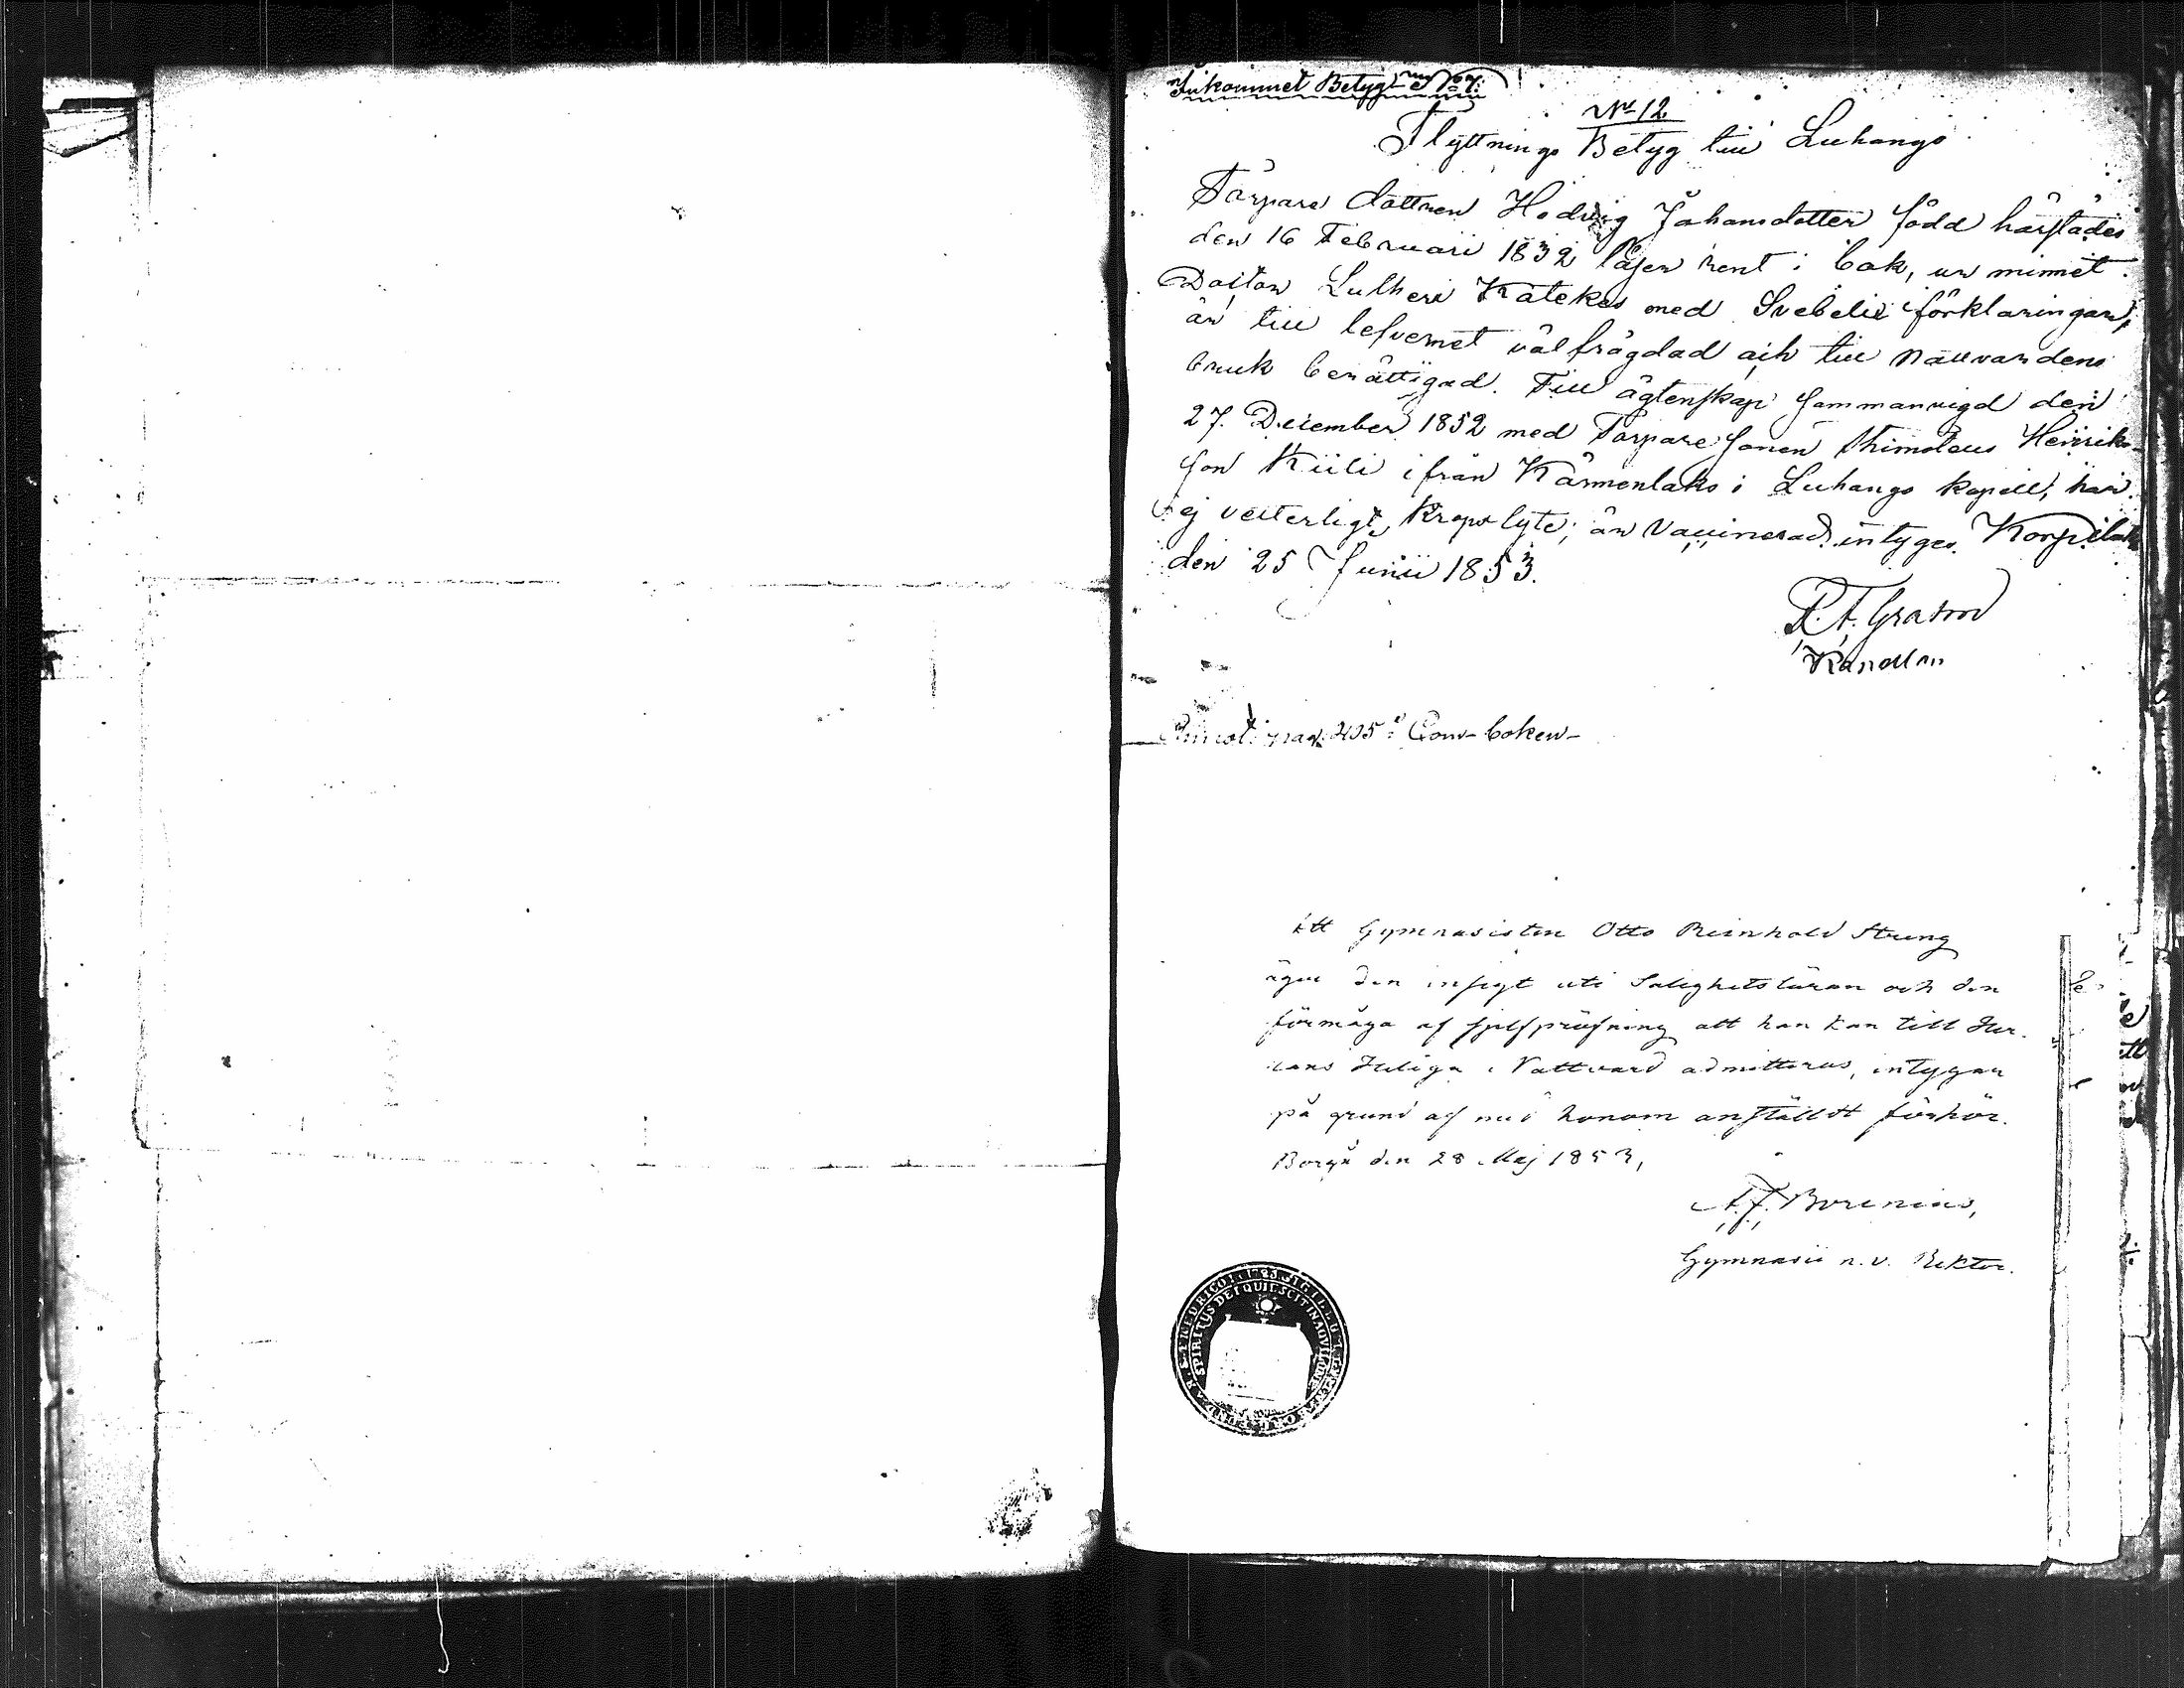 Inkommet Betygt N 67.
No 12
Flyttnings Betyg till Luhango
Torpare dottren Hedvig Johansdotter född härstädes
den 16 Februari 1832 läser rent i bok, ur minnet
Doctor Lutheri Katekes med Svebelii förklaringar,
är till lefvernet välfrägdad och till Nattvardens
bruk berättigad. Till ägtenskap sammanvigd den
27. December 1852 med Torpare Sonen Thimoteus Henrik-
son Kiili ifrån Kärmenlaks i Luhango kapell, har
ej veterligt Kropslyte; är Vaccinerad intygas Korpilaks
den 25 Junii 1853.
Annot. pag. 205 i Com-boken-
Att Gymnasisten Otto Reinhold Streng
äger den insigt uti Salighetsläran och den
förmåga af sjelfpröfning att han kan till Her-
rans Heliga Nattvard admitteras, intygar
på grund af med honom anstäldt förhör.
Borgå den 28 Maj 1853,
A. F. Borenius,
Gymnasii n. v. Rektor.
SPIRITUS DEI QUIESCIT IN AQUILONE